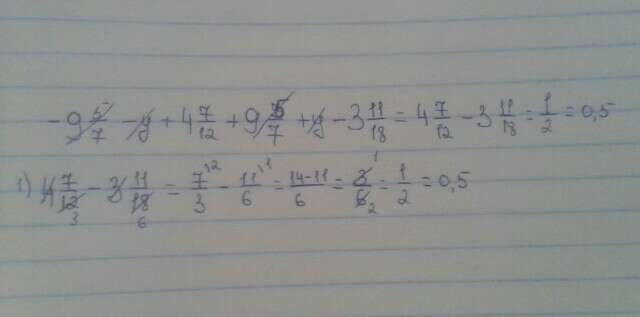 -9 5/7 - y + 4 7/12 + 9 5/7 + y - 3 11/18 = 4 7/12 - 3 11/18 = 1/2 = 0,5
1) 4 7/12 3 - 3 11/18 6 = 7\2/3 - 11\1/6 = 14-11/6 = 3 1/6 2 = 1/2 = 0,5